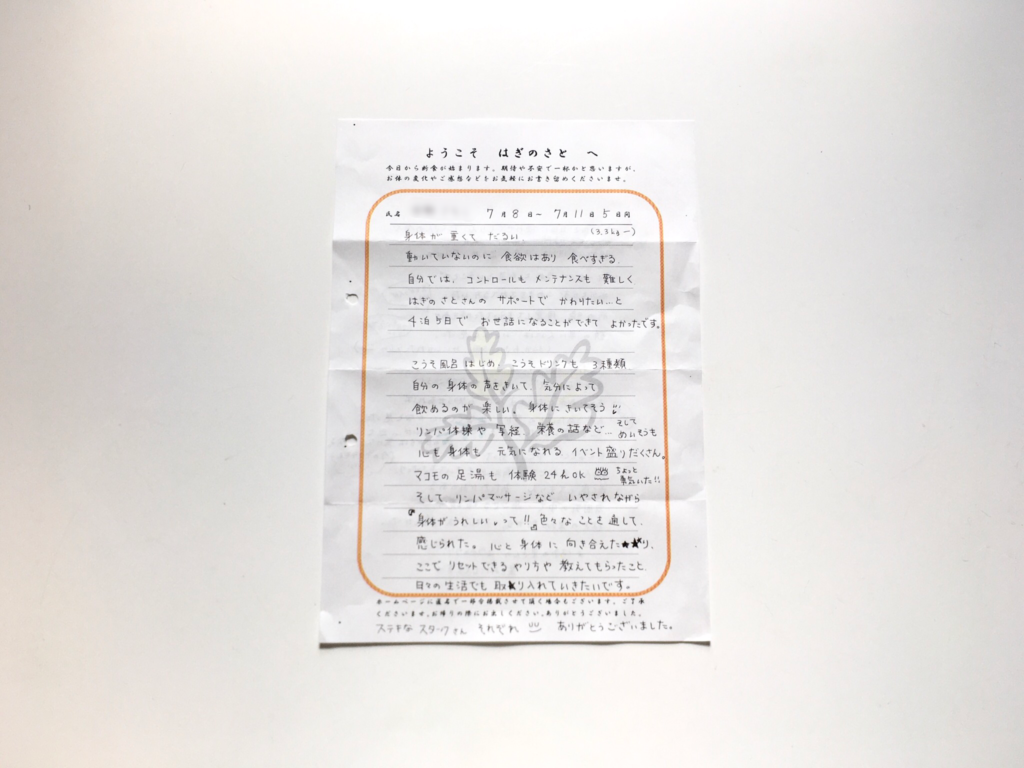 ようこそ はぎのさと へ
今日から断食が始まります。期待や不安で一杯かと思いますが、
お体の変化やご感想などをお気軽にお書き留めくださいませ。
氏名 7月8日〜7月11日5日間
(3.3kgー)
身体が重くてだるい、
動いていないのに食欲はあり食べすぎる
自分では、コントロールもメンテナンスも難しく
はぎのさとさんのサポートでかわりたい…と
4泊5日でお世話になることができてよかったです。
こうそ風呂はじめ、こうそドリンクも3種類
自分の身体の声をきいて、気分によって
飲めるのが楽しい。身体にきいてそう
リンパ体操や写経、栄養の話など… そして めいそうも
心も身体も元気になれるイベント盛りだくさん。
マコモの足湯も体験24h OK ちょっと 勇気いた!!
そしてリンパマッサージなどいやされながら
"身体がうれしい。って!!"色々なことを通して、
感じられた。心と身体に向き合えたり、
ここでリセットできるやり方や教えてもらったこと、
日々の生活でも取り入れていきたいです。
ホームページに匿名で一部分掲載させて頂く場合もございます。ご了承
くださいませ。お帰りの際にお出しください。ありがとうございました。
ステキなスタッフさんそれぞれ ありがとうございました。